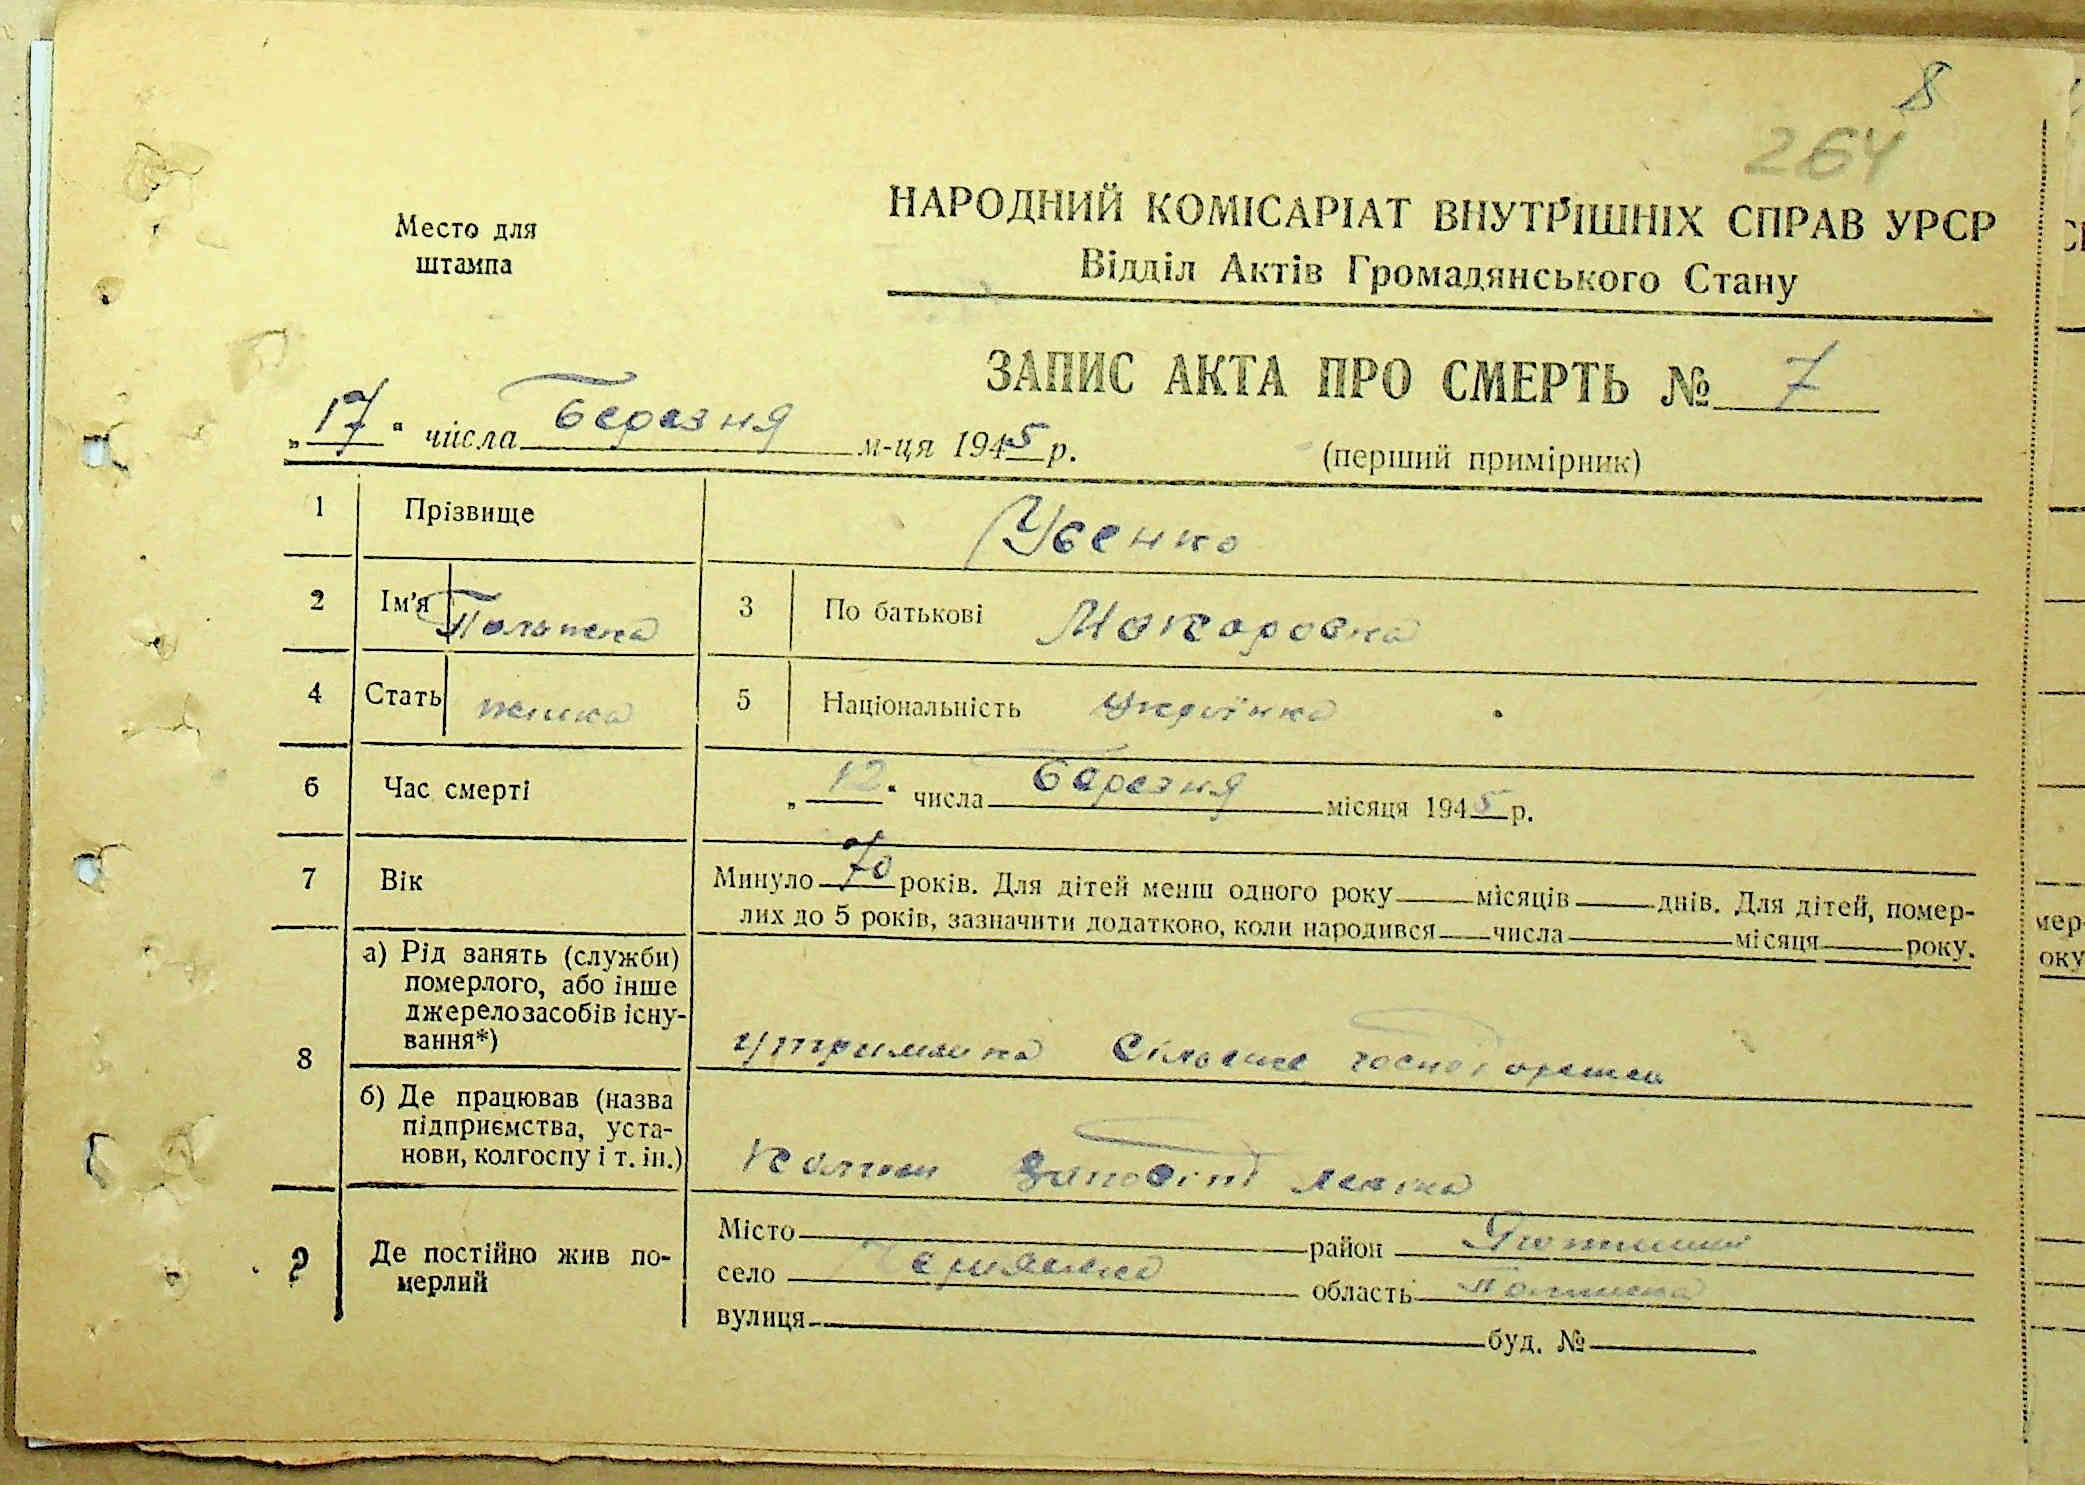 8
264
Место для
штампа
НАРОДНИЙ КОМІСАРІАТ ВНУТРІШНІХ СПРАВ УРСР
Відділ Актів Громадянського Стану
ЗАПИС АКТА ПРО СМЕРТЬ № 7
„17“ числа Березня м-ця 1945 р.
(перший примірник)
1 Прізвище Усенко
2 Ім'я 3 По батькові Макаровна
4 Стать жінка 5 Національність Українка
6 Час смерті „12“ числа Березня місяця 1945 р.
7 Вік Минуло 70 років. Для дітей менш одного року місяців днів. Для дітей, помер-
лих до 5 років, зазначити додатково, коли народився числа місяця року.
8 а) Рід занять (служби)
померлого, або інше
джерело засобів існу-
вання*)
утриманка сільське
б) Де працював (назва
підприємства, уста-
нови, колгоспу і т. ін.)
Колгосп Заповіт Леніна
9 Де постійно жив по-
мерлий
Місто район
село область Полтавська
вулиця буд. №